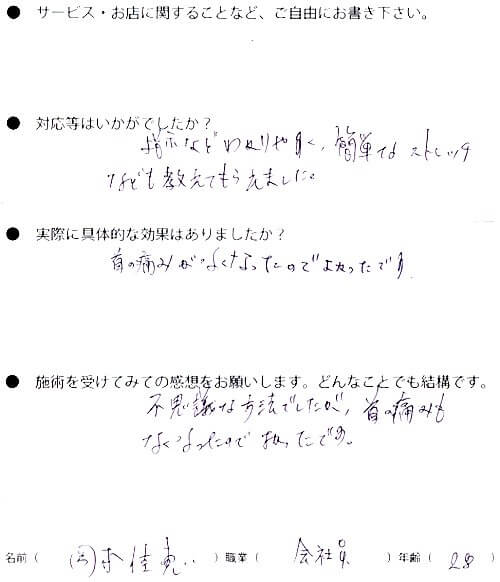 ● サービス・お店に関することなど、ご自由にお書き下さい。
● 対応等はいかがでしたか？
指示など わかりやすく、簡単な ストレッチ
なども 教えてもらえました。
● 実際に具体的な効果はありましたか？
首の痛みがなくなったのでよかったです
● 施術を受けてみての感想をお願いします。どんなことでも結構です。
不思議な方法でしたが、首の痛みも
なくなったので よかったです。
名前（ 本 佳 ）職業（ 会社員 ）年齢（ 28 ）